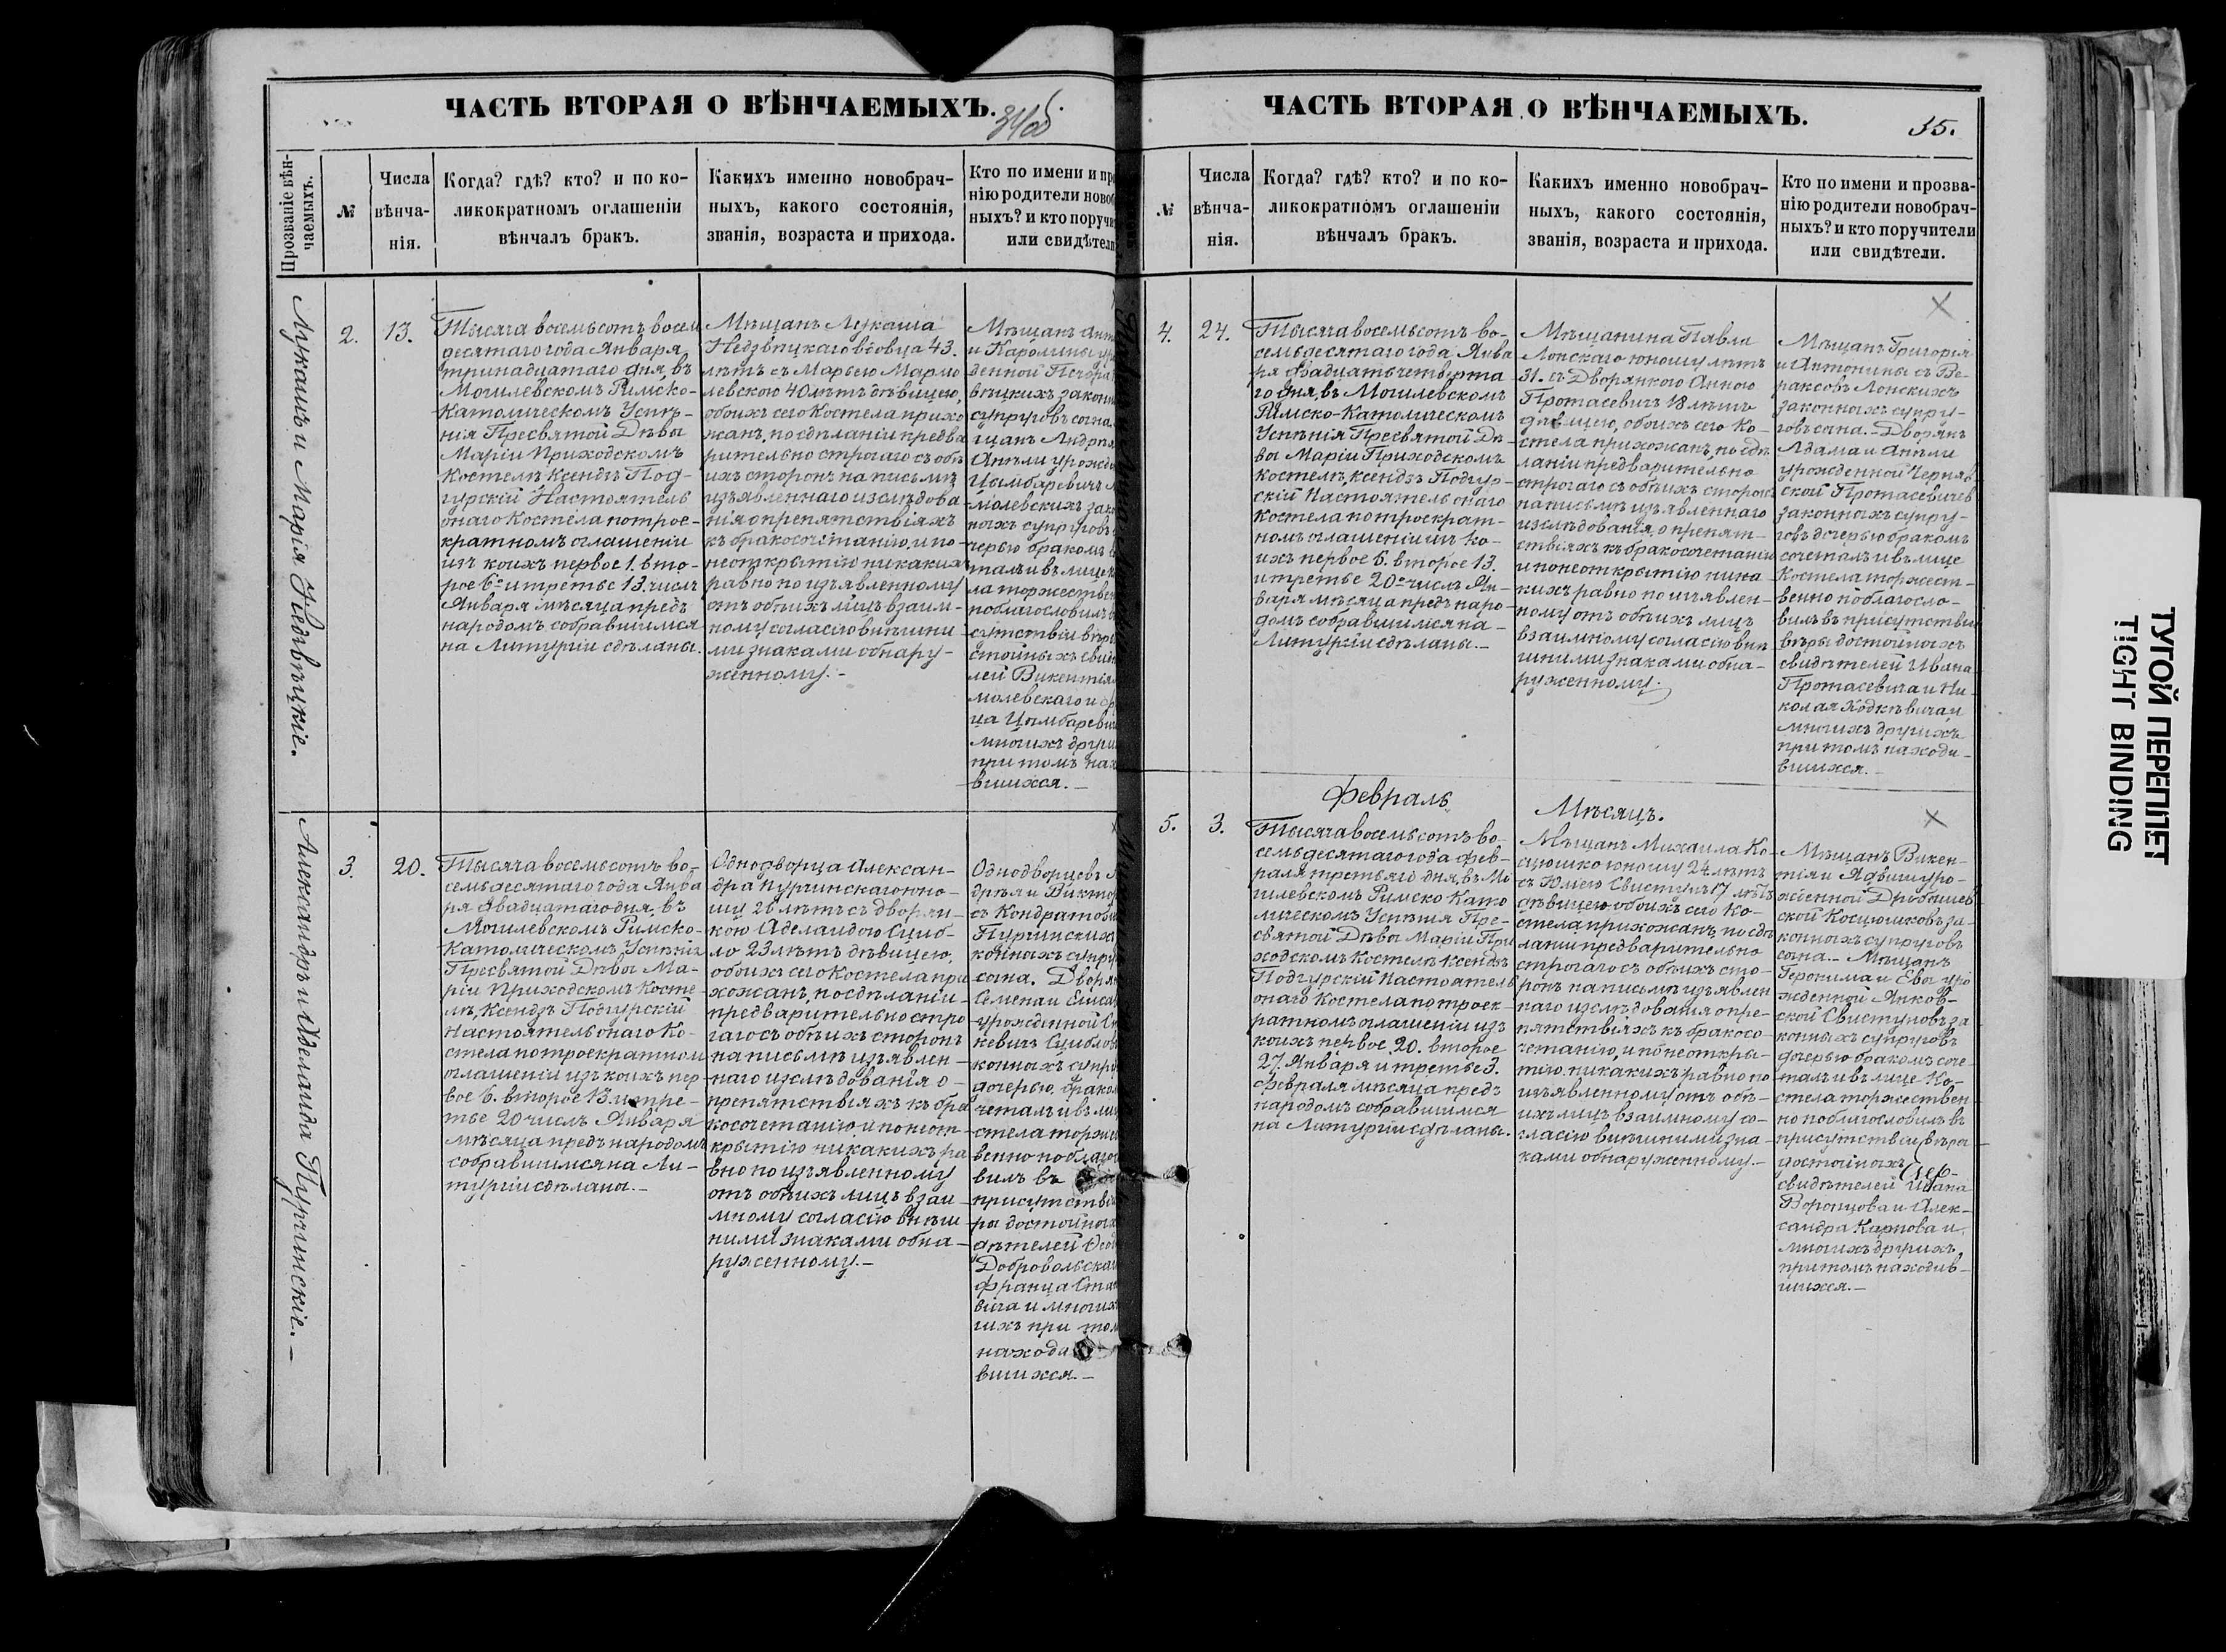 ЧАСТЬ ВТОРАЯ О ВѢНЧАЕМЫХЪ.
34об
Прозваніе вѣн-
чаемыхъ.
№
Числа
вѣнча-
нія.
Когда? гдѣ? кто? и по ко-
ликократномъ оглашеніи
вѣнчалъ бракъ.
Какихъ именно новобрач-
ныхъ, какого состоянія,
званія, возраста и прихода.
Кто по имени и про
нію родители новоб
ныхъ? и кто поручи
или свидѣтели
Лукашъ и Марія Недзвѣцкіе.
2.
13.
Тысяча восемьсотъ восем
десятаго года Января
тринадцатаго дня, въ
Могилевскомъ Римско-
Католическомъ Успѣ-
нія Пресвятой Дѣвы
Маріи Приходскомъ
Костелѣ Ксендзъ Под-
гурскій Настоятель
онаго Костела по трое-
кратномъ оглашеніи
изъ коихъ первое 1. вто-
рое 6е и третье 13. числъ
Января мѣсяца предъ
народомъ собравшимся
на Литургіи сдѣланы.
Мѣщанъ Лукаша
Недзвѣцкаго вдовца 43.
лѣтъ съ Марьею Мармо
левскою 40 лѣтъ дѣвицею,
обоихъ сего Костела прихо
жанъ, по сдѣланіи предва
рительно строгаго съ обѣ
ихъ сторонъ на письмѣ
изъявленнаго изслѣдова
нія о препятствіяхъ
къ бракосочетанію, и по
неоткрытію никакихъ
равно по изъявленному
отъ обѣихъ лицъ взаим-
ному согласію внѣшни
ми знаками обнару-
женному.-
Мѣщанъ Ант
и Каролины ур
денной Печора
вѣцкихъ законн
супруговъ сына
щанъ Андрея
Анѣли урожде
Цымбаревичъ М
молевскихъ зако
ныхъ супруговъ
черью бракомъ
талъ и въ лице
ла торжествен
поблагословилъ
сутствіи вѣро
стойныхъ свидѣ
лей Викентія
молевскаго и Фр
ца Цымбареви
многихъ други
при томъ нах
вшихся.-
Александръ и Аделаида Пургинскіе.-
3.
20.
Тысяча восемьсотъ во-
семьдесятаго года Янва
ря двадцатаго дня, въ
Могилевскомъ Римско-
Католическомъ Успѣнія
Пресвятой Дѣвы Ма-
ріи Приходскомъ Косте-
лѣ, Ксендзъ Подгурскій
Настоятель онаго Ко-
стела по троекратном
оглашеніи изъ коихъ пер
вое 6. второе 13. и тре-
тье 20 числъ Января
мѣсяца предъ народомъ
собравшимся на Ли-
тургіи сдѣланы.-
Однодворца Алексан-
дра Пургинскаго юно-
шу 26 лѣтъ съ дворян-
кою Аделаидою Сциб-
ло 23 лѣтъ дѣвицею,
обоихъ сего Костела при
хожанъ, по сдѣланіи-
предварительно стро
гаго съ обѣихъ сторонъ
на письмѣ изъявлен-
наго изслѣдованія о-
препятствіяхъ къ бра
косочетанію и по неот-
крытію никакихъ ра
вно по изъявленному
отъ обѣихъ лицъ взаи
мному согласію внѣш
ними знаками обна-
руженному.-
Однодворцовъ А
дрѣя и Виктор
съ Кондратови
Пургинскихъ
конныхъ супру
сына. Дворя
Семена и Елиса
урожденной Ст
кевичъ Сцибло
конныхъ супру
дочерью, брако
четалъ и въ лиц
стела торже
венно поблаго
вилъ въ
присутстві
ры достойных
дѣтелей Фео
Добровольска
Франца Ста
вича и многих
гихъ при том
находи
вшихся.-
ЧАСТЬ ВТОРАЯ О ВѢНЧАЕМЫХЪ.
35.
№
Числа
вѣнча-
нія.
Когда? гдѣ? кто? и по ко-
ликократномъ оглашеніи
вѣнчалъ бракъ.
Какихъ именно новобрач-
ныхъ, какого состоянія,
званія, возраста и прихода.
Кто по имени и прозва-
нію родители новобрач-
ныхъ? и кто поручители
или свидѣтели.
4.
24.
Тысяча восемьсотъ во-
семьдесятаго года Янва
ря двадцать четверта
го дня, въ Могилевскомъ
Римско-Католическомъ
Успѣнія Пресвятой Дѣ-
вы Маріи Приходскомъ
Костелѣ, Ксендзъ Подгур-
скій Настоятель онаго
Костела по троекрат-
номъ оглашеніи изъ ко-
ихъ первое 6. второе 13.
и третье 20е числъ Ян-
варя мѣсяца предъ наро-
домъ собравшимся на-
Литургіи сдѣланы.-
Мѣщанина Павла
Лонскаго юношу лѣтъ
31. съ Дворянкою Анною
Протасевичъ 18 лѣтъ
дѣвицею, обоихъ сего Ко-
стела прихожанъ, по сдѣ
ланіи предварительно
строгаго съ обѣихъ сторонъ
на письмѣ изъявленнаго
изслѣдованія, о препят-
ствіяхъ къ бракосочетанію
и по неоткрытію ника
кихъ равно по изъявлен-
ному отъ обѣихъ лицъ
взаимному согласію внѣ
шними знаками обна-
руженному.
Мѣщанъ Григорія
и Антонины съ Ве-
раксовъ Лонскихъ
законныхъ супру-
говъ сына.- Дворянъ
Адама и Анѣли
урожденной Черняв-
ской Протасевичев
законныхъ супру-
говъ дочерью бракомъ
сочеталъ и въ лице
Костела торжест-
венно поблагосло-
вилъ въ присутствіи
вѣры достойныхъ
свидѣтелей Ивана
Протасевича и Ни-
колая Ходкѣвича и
многихъ другихъ
при томъ находи-
вшихся.-
Февраль
Мѣсяцъ.
5.
3.
Тысяча восемьсотъ во-
семьдесятаго года Фев-
раля третьяго дня, въ Мо
гилевскомъ Римско Като
лическомъ Успѣнія Пре-
святой Дѣвы Маріи При
ходскомъ Костелѣ Ксендзъ
Подгурскій Настоятель
онаго Костела по троек-
ратномъ оглашеніи изъ
коихъ первое 20. второе
27. Января и третье 3.
Февраля мѣсяца предъ
народомъ собравшимся
на Литургіи сдѣланы.
Мѣщанъ Михаила Ко-
сцюшко юношу 24 лѣтъ
съ Юліею Свистунъ 17 лѣтъ
дѣвицею обоихъ сего Ко-
стела прихожанъ, по сдѣ
ланіи предварительно
строгаго съ обѣихъ сто-
ронъ на письмѣ изъявлен
наго изслѣдованія о пре-
пятствіяхъ къ бракосо-
четанію, и по неоткры-
тію никакихъ равно по
изъявленному отъ обѣ-
ихъ лицъ взаимному со-
гласію внѣшними зна-
ками обнаруженному.-
Мѣщанъ Викен-
тія и Ядвиги уро-
жденной Дробышев
ской Косцюшковъ за-
конныхъ супруговъ
сына.- Мѣщанъ
Геронима и Евы уро
жденной Янков-
ской Свистуновъ за
конныхъ супруговъ
дочерью бракомъ соче-
талъ и въ лице Ко-
стела торжествен-
но поблагословилъ въ
присутствіи вѣры
достойныхъ
свидѣтелей Ивана
Воронцова и Алек-
сандра Карпова и
многихъ другихъ
при томъ находив-
шихся.-
ТУГОЙ ПЕРЕПЛЕТ
TIGHT BINDING